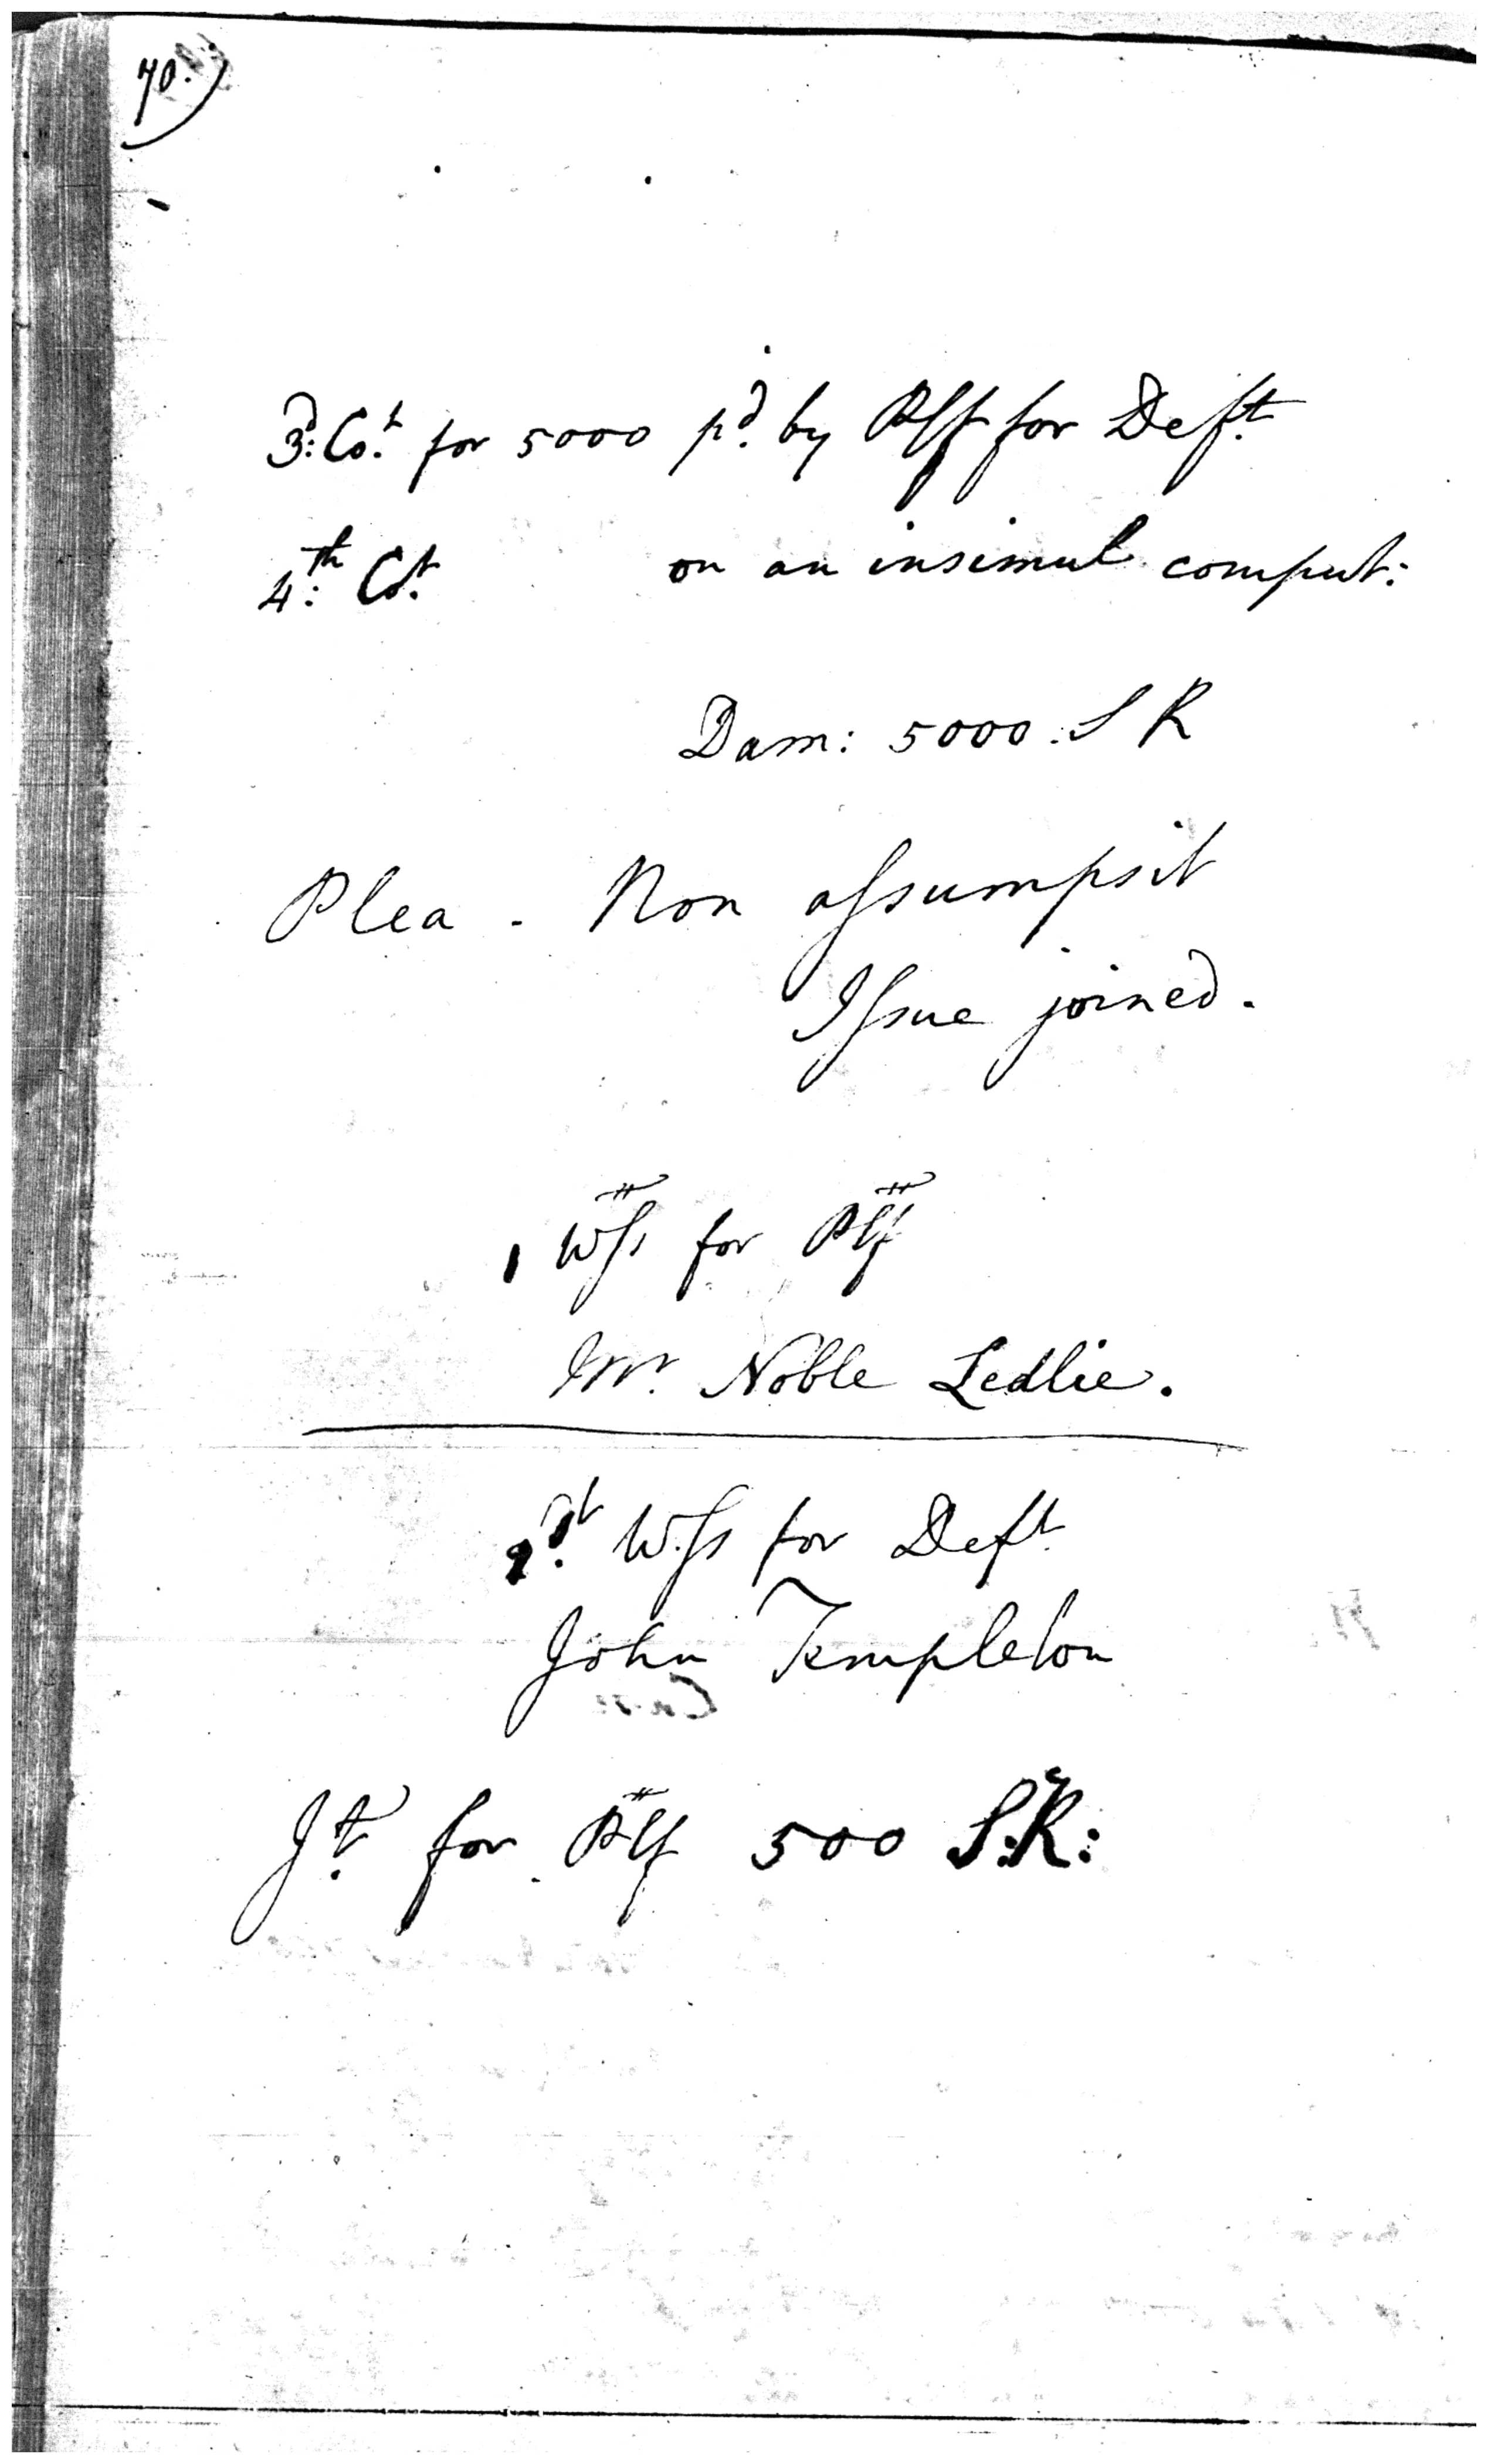 70.
3d: Cot. for 5000 pd. by Plff for Deft.
4th: Cot. on an insimul comput:
Dam: 5000. S R
Plea - Non assumpsit
Issue joined.
1 Wss for Plff
Mr. Noble Ledlie.
1st. Wss for Deft.
John Templeton
Jt. for Plff 500 S.R: